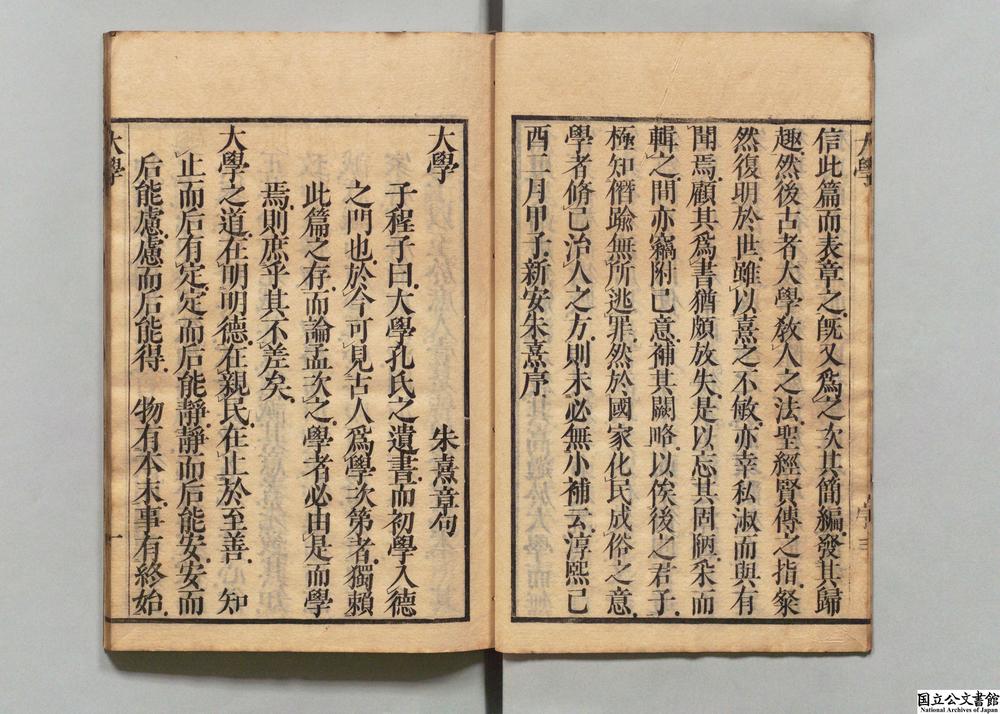 信此篇而表章之既又爲之次其簡編發其歸
趣然後古者大學教人之法聖經賢傳之指粲
然復明於世雖以熹之不敏亦幸私淑而與有
聞焉顧其爲書猶頗放失是以忘其固陋釆而
輯之間亦竊附己意補其闕略以俟後之君子
極知僭踰無所逃罪然於國家化民成俗之意
學者脩己治人之方則未必無小補云淳熙己
酉二月甲子新安朱熹序
大學
朱熹章句
子程子曰大學孔氏之遺書而初學入德
之門也於今可見古人爲學次第者獨賴
此篇之存而論孟次之學者必由是而學
焉則庶乎其不差矣
大學之道在明明德在親民在止於至善 知
止而后有定定而后能靜靜而后能安安而
后能慮慮而后能得 物有本末事有終始
大學
一
国立公文書館
National Archives of Japan